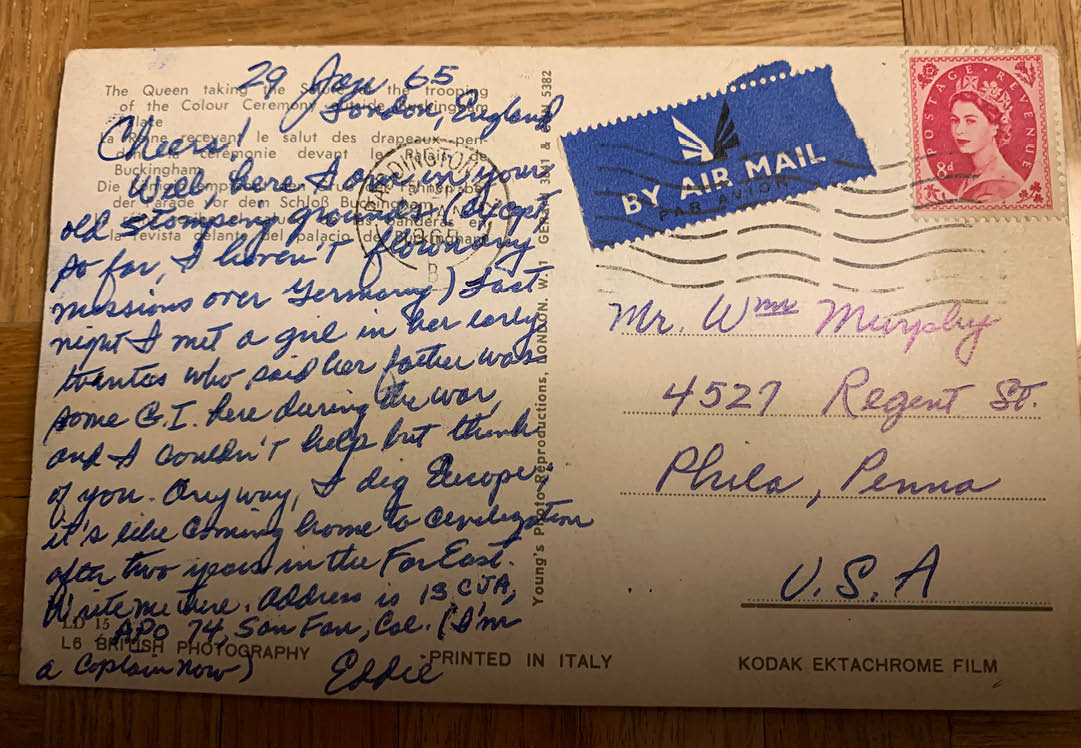 29 Jan 65
London, England
Cheers!
Well, here I am in your
old stomping grounds. (Except
so far, I haven't flown any
missions over Germany) Last
night I met a girl in her early
twenties who said her father was
some G.I. here during the war,
and I couldn't help but think
of you. Anyway, I dig Europe;
it's like coming home to civilization
after two years in the Far East.
Write me there. Address is 13 CJA,
APO 74, San Fran, Cal. (I'm
a Captain now)
Eddie
The Queen taking the the trooping
of the Colour Ceremony outside Buckingham
La Reine recevant le salut des drapeaux pen-
dant la cérémonie devant le Palais de
Buckingham
Die
der Parade vor dem Schloß Buckingham
la revista delante del palacio de Buckingham
LD 15
L6 BRITISH PHOTOGRAPHY
PRINTED IN ITALY
KODAK EKTACHROME FILM
Young's Photo Reproductions, LONDON. W.1 5382
PADDINGTON
JAN
1965
B
BY AIR MAIL
PAR AVION
POSTAGE REVENUE
8d
Mr. Wm Murphy
4527 Regent St.
Phila, Penna
U.S.A